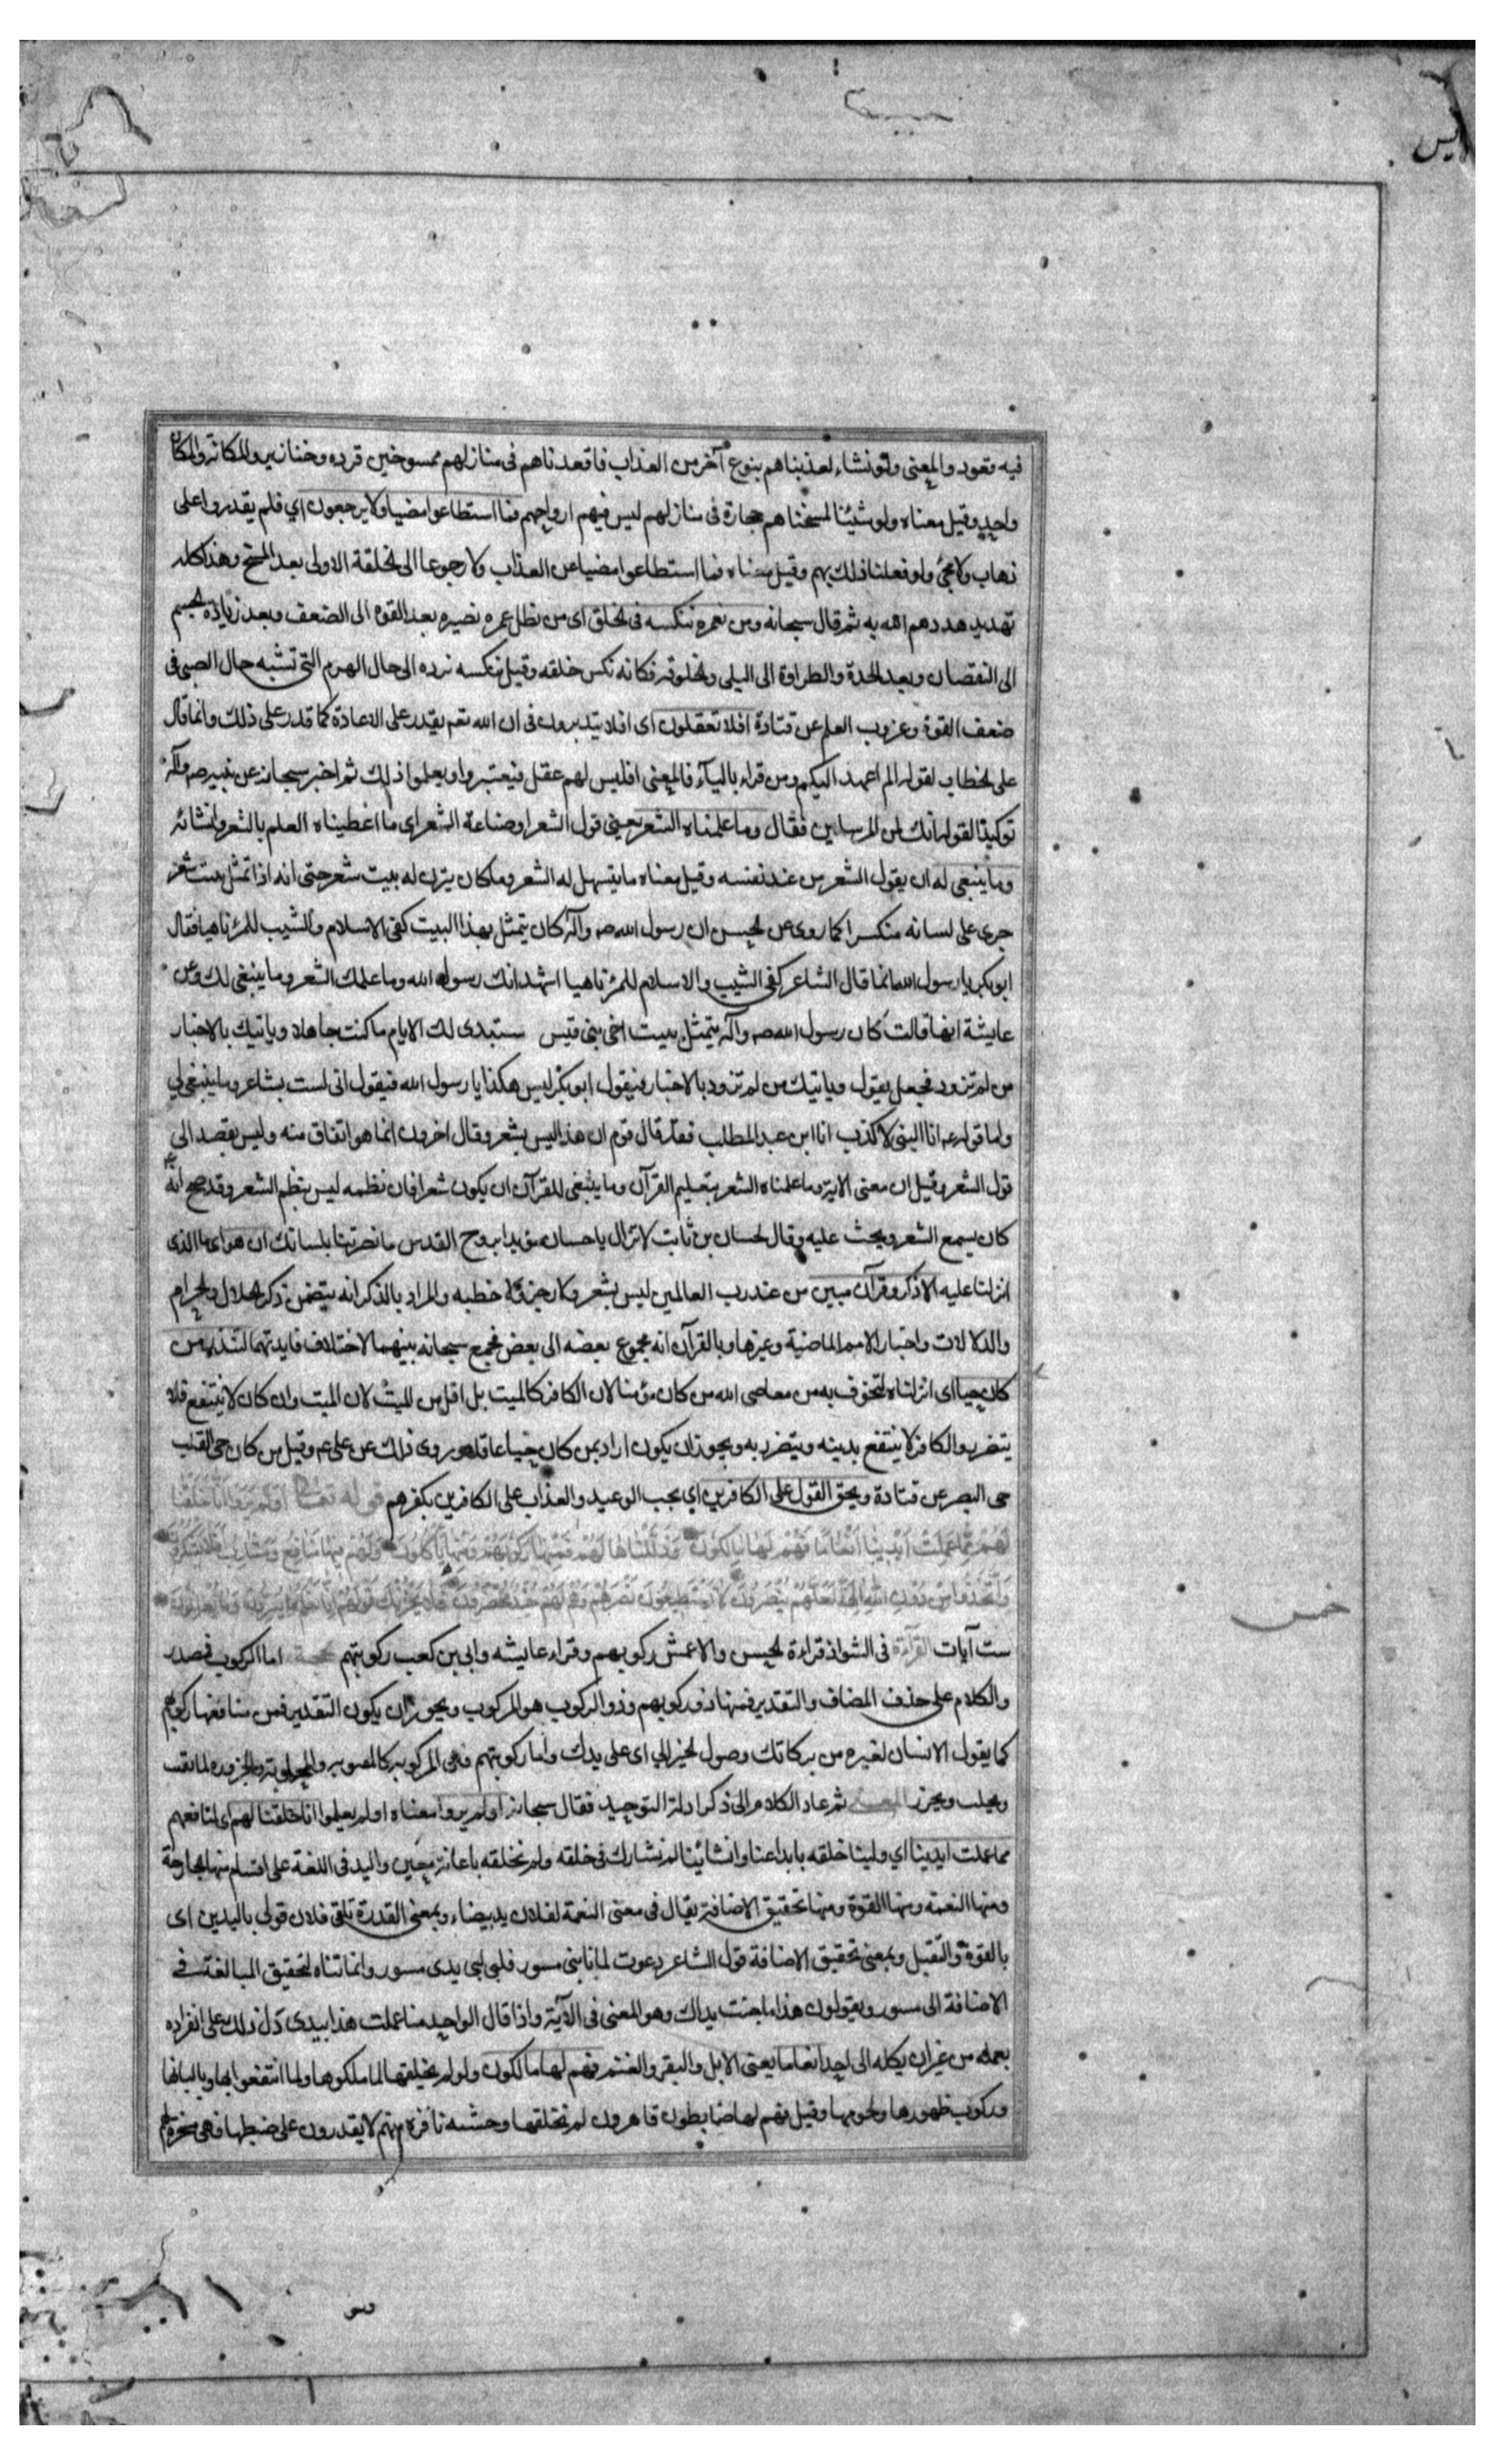 يس
فيه قعود والمعنى ولو نشاء لعذبناهم بنوع آخر من العذاب فاقعدناهم فى منازلهم ممسوخين قردة وخنازير والمكانة والمكان
واحد وقيل معناه ولو شيئنا لمسخناهم حجارة فى منازلهم ليس فيهم ارواحهم فما استطاعوا مضيا ولا يرجعون اي فلم يقدروا على
ذهاب ولا مجئ ولو فعلنا ذلك بهم وقيل معناه فما استطاعوا مضيا عن العذاب ولا رجوعا الى الخلقة الاولى بعد المسخ وهذا كله
تهديد هددهم الله به ثم قال سبحانه ومن نعمره ننكسه فى الخلق اى من نطل عمره نصيره بعد القوة الى الضعف وبعد زيادة الجسم
الى النقصان وبعد الجدة والطراوة الى البلى والخلوقة فكانه نكس خلقه وقيل ننكسه نرده الى حال الهرم التى تشبه حال الصبى فى
ضعف القوة وعزوب العلم عن قتادة افلا تعقلون اى افلا يتدبرون فى ان الله تعم يقدر على الاعادة كما قدر على ذلك وانما قال
على الخطاب لقوله الم اعهد اليكم ومن قراء بالياء فالمعنى افليس لهم عقل فيعتبروا ويعلموا ذلك ثم اخبر سبحانه عن نبيه صم وآله
توكيدا لقوله انك لمن المرسلين فقال وما علمناه الشعر يعنى قول الشعر او صناعة الشعر اى ما اعطيناه العلم بالشعر وانشائه
وما ينبغى له ان يقول الشعر من عند نفسه وقيل معناه ما يتسهل له الشعر وما كان يتزن له بيت شعر حتى انه اذا تمثل ببيت شعر
جرى على لسانه منكسرا كما روى عن الحسن ان رسول الله صم وآله كان يتمثل بهذا البيت كفى الاسلام والشيب للمرء ناهيا فقال
ابو بكر يا رسول الله انما قال الشاعر كفى الشيب والاسلام للمرء ناهيا اشهد انك رسول الله وما علمك الشعر وما ينبغى لك وعن
عايشة انها قالت كان رسول الله صم وآله يتمثل ببيت اخى بنى قيس ستبدى لك الايام ما كنت جاهلا وياتيك بالاخبار
من لم تزود فجعل يقول وياتيك من لم تزود بالاخبار فيقول ابو بكر ليس هكذا يا رسول الله فيقول انى لست بشاعر وما ينبغى لي
واما قوله عم انا النبى لا كذب انا ابن عبد المطلب فقد قال قوم ان هذا ليس بشعر وقال اخرون انما هو اتفاق منه وليس بقصد الى
قول الشعر وقيل ان معنى الاية وما علمناه الشعر بتعليم القرآن وما ينبغى للقرآن ان يكون شعرا فان نظمه ليس بنظم الشعر وقد صح انه
كان يسمع الشعر ويحث عليه وقال لحسان بن ثابت لا تزال يا حسان مؤيدا بروح القدس ما نصرتنا بلسانك ان هو اى ما الذى
انزلنا عليه الا ذكر وقرآن مبين من عند رب العالمين ليس بشعر ولا رجز ولا خطبه والمراد بالذكر انه يتضمن ذكر الحلال والحرام
والدلالات واخبار الامم الماضية وغيرها وبالقرآن انه مجموع بعضه الى بعض فجمع سبحانه بينهما لاختلاف فايدتهما لتنذر من
كان حيا اى انزلناه لتخوف به من معاصى الله من كان مؤمنا لان الكافر كالميت بل اقل من الميت لان الميت وان كان لا ينتفع فلا
يتضرر والكافر لا ينتفع بدينه ويتضرر به ويجوز ان يكون اراد بمن كان حيا عاقلا وروى ذلك عن على عم وقيل من كان حى القلب
حى البصر عن قتادة ويحق القول على الكافرين اي يجب الوعيد والعذاب على الكافرين بكفرهم قوله تعالى اَوَلَمْ يَرَوْا اَنَّا خَلَقْنَا
لَهُمْ مِمَّا عَمِلَتْ اَيْدِينَا اَنْعَامًا فَهُمْ لَهَا مَالِكُونَ وَذَلَّلْنَاهَا لَهُمْ فَمِنْهَا رَكُوبُهُمْ وَمِنْهَا يَأْكُلُونَ وَلَهُمْ فِيهَا مَنَافِعُ وَمَشَارِبُ اَفَلَا يَشْكُرُونَ
وَاتَّخَذُوا مِنْ دُونِ اللَّهِ آلِهَةً لَعَلَّهُمْ يُنْصَرُونَ لَا يَسْتَطِيعُونَ نَصْرَهُمْ وَهُمْ لَهُمْ جُنْدٌ مُحْضَرُونَ فَلَا يَحْزُنْكَ قَوْلُهُمْ اِنَّا نَعْلَمُ مَا يُسِرُّونَ وَمَا يُعْلِنُونَ
خمس
ست آيات القراءة فى الشواذ قراءة الحسن والاعمش ركوبهم وقراء عايشه وابى بن كعب ركوبتهم الحجة اما الركوب فمصدر
والكلام على حذف المضاف والتقدير فمنها ذو ركوبهم وذو الركوب هو المركوب ويجوز ان يكون التقدير فمن منافعها ركوبهم
كما يقول الانسان لغيره من بركاتك وصول الخير الي اى على يدك واما ركوبتهم فهى المركوبة كالحلوبة والجزوره لما يقتب
ويحلب ويجزر المعنى ثم عاد الكلام الى ذكر ادلة التوحيد فقال سبحانه اولم يروا معناه اولم يعلموا انا خلقنا لهم اى لمنافعهم
مما عملت ايدينا اي ولينا خلقه بابداعنا وانشائنا لم نشارك فى خلقه ولم نخلقه باعانة معين واليد فى اللغة على اقسام منها الجارحة
ومنها النعمة ومنها القوة ومنها تحقيق الاضافة يقال فى معنى النعمة لفلان يد بيضاء وبمعنى القدرة تلقى فلان قولى باليدين اى
بالقوة والتقبل وبمعنى تحقيق الاضافة قول الشاعر دعوت لما نابنى مسور فلبى لبى يدى مسور وانما ثناه لتحقيق المبالغة فى
الاضافة الى مسور ويقولون هذا ما جنت يداك وهو المعنى فى الآية واذا قال الواحد منا عملت هذا بيدى دل ذلك على انفراده
بعمله من غير ان يكله الى احد انعاما يعنى الابل والبقر والغنم فهم لها مالكون ولو لم نخلقها لما ملكوها ولما انتفعوا بها وبالبانها
وركوب ظهورها ولحومها وقيل فهم لها ضابطون قاهرون لم نخلقها وحشيه نافرة منهم لا يقدرون على ضبطها فهى مسخرة لهم